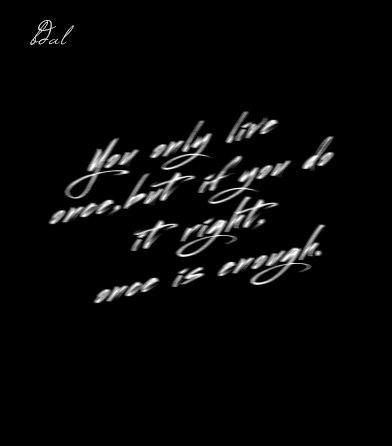 You only live
once,but if you do
it right,
once is enough.